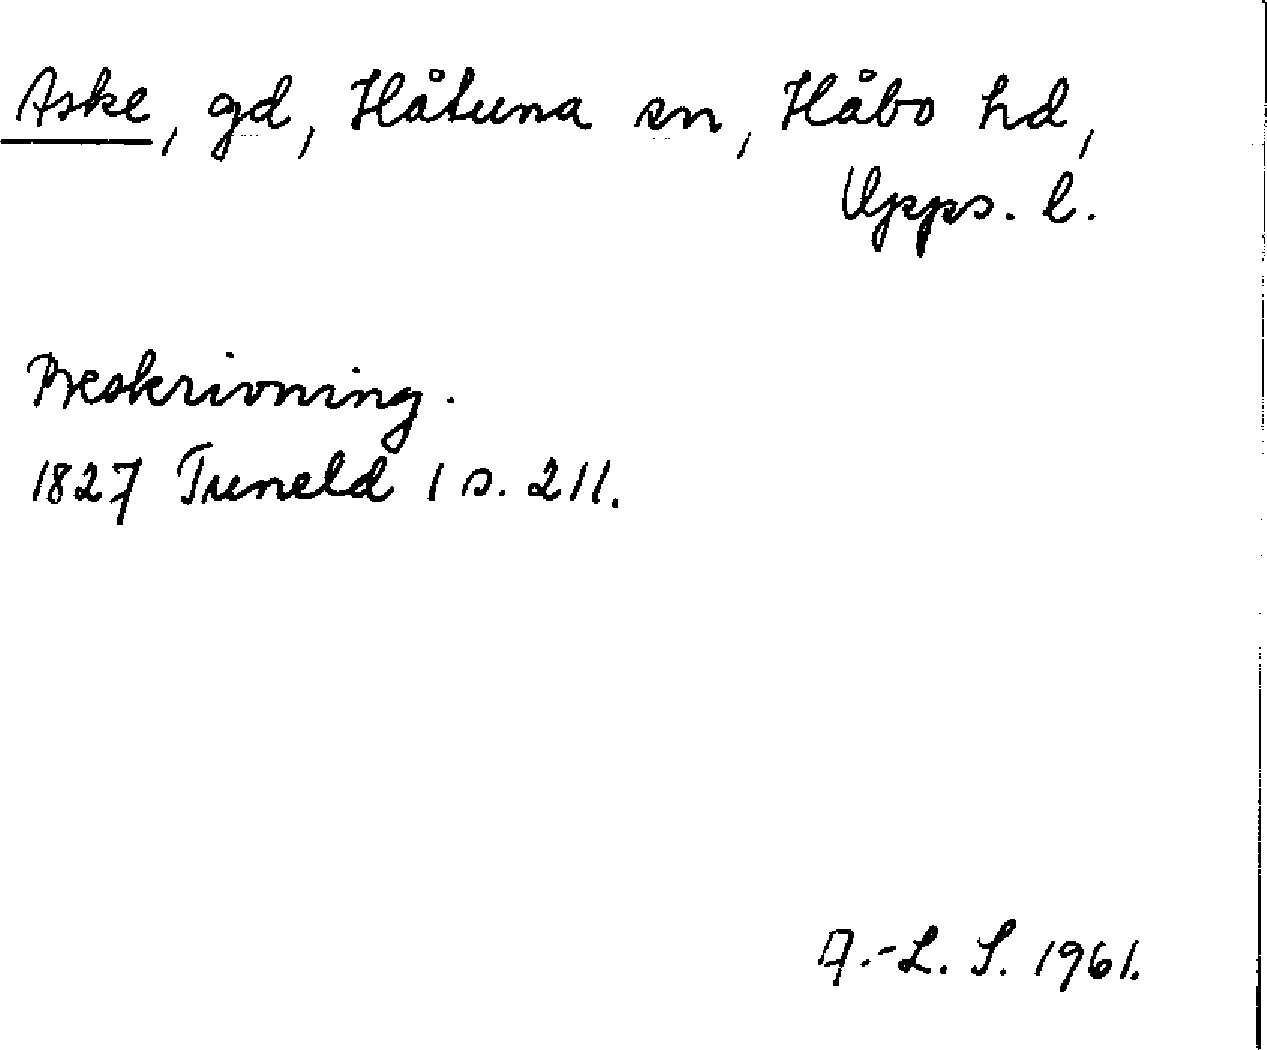 Aske, gd, Håtuna sn, Håbo hd,
Upps. l.
Beskrivning.
1827 Tuneld 1 s. 211.
A.-L. S. 1961.